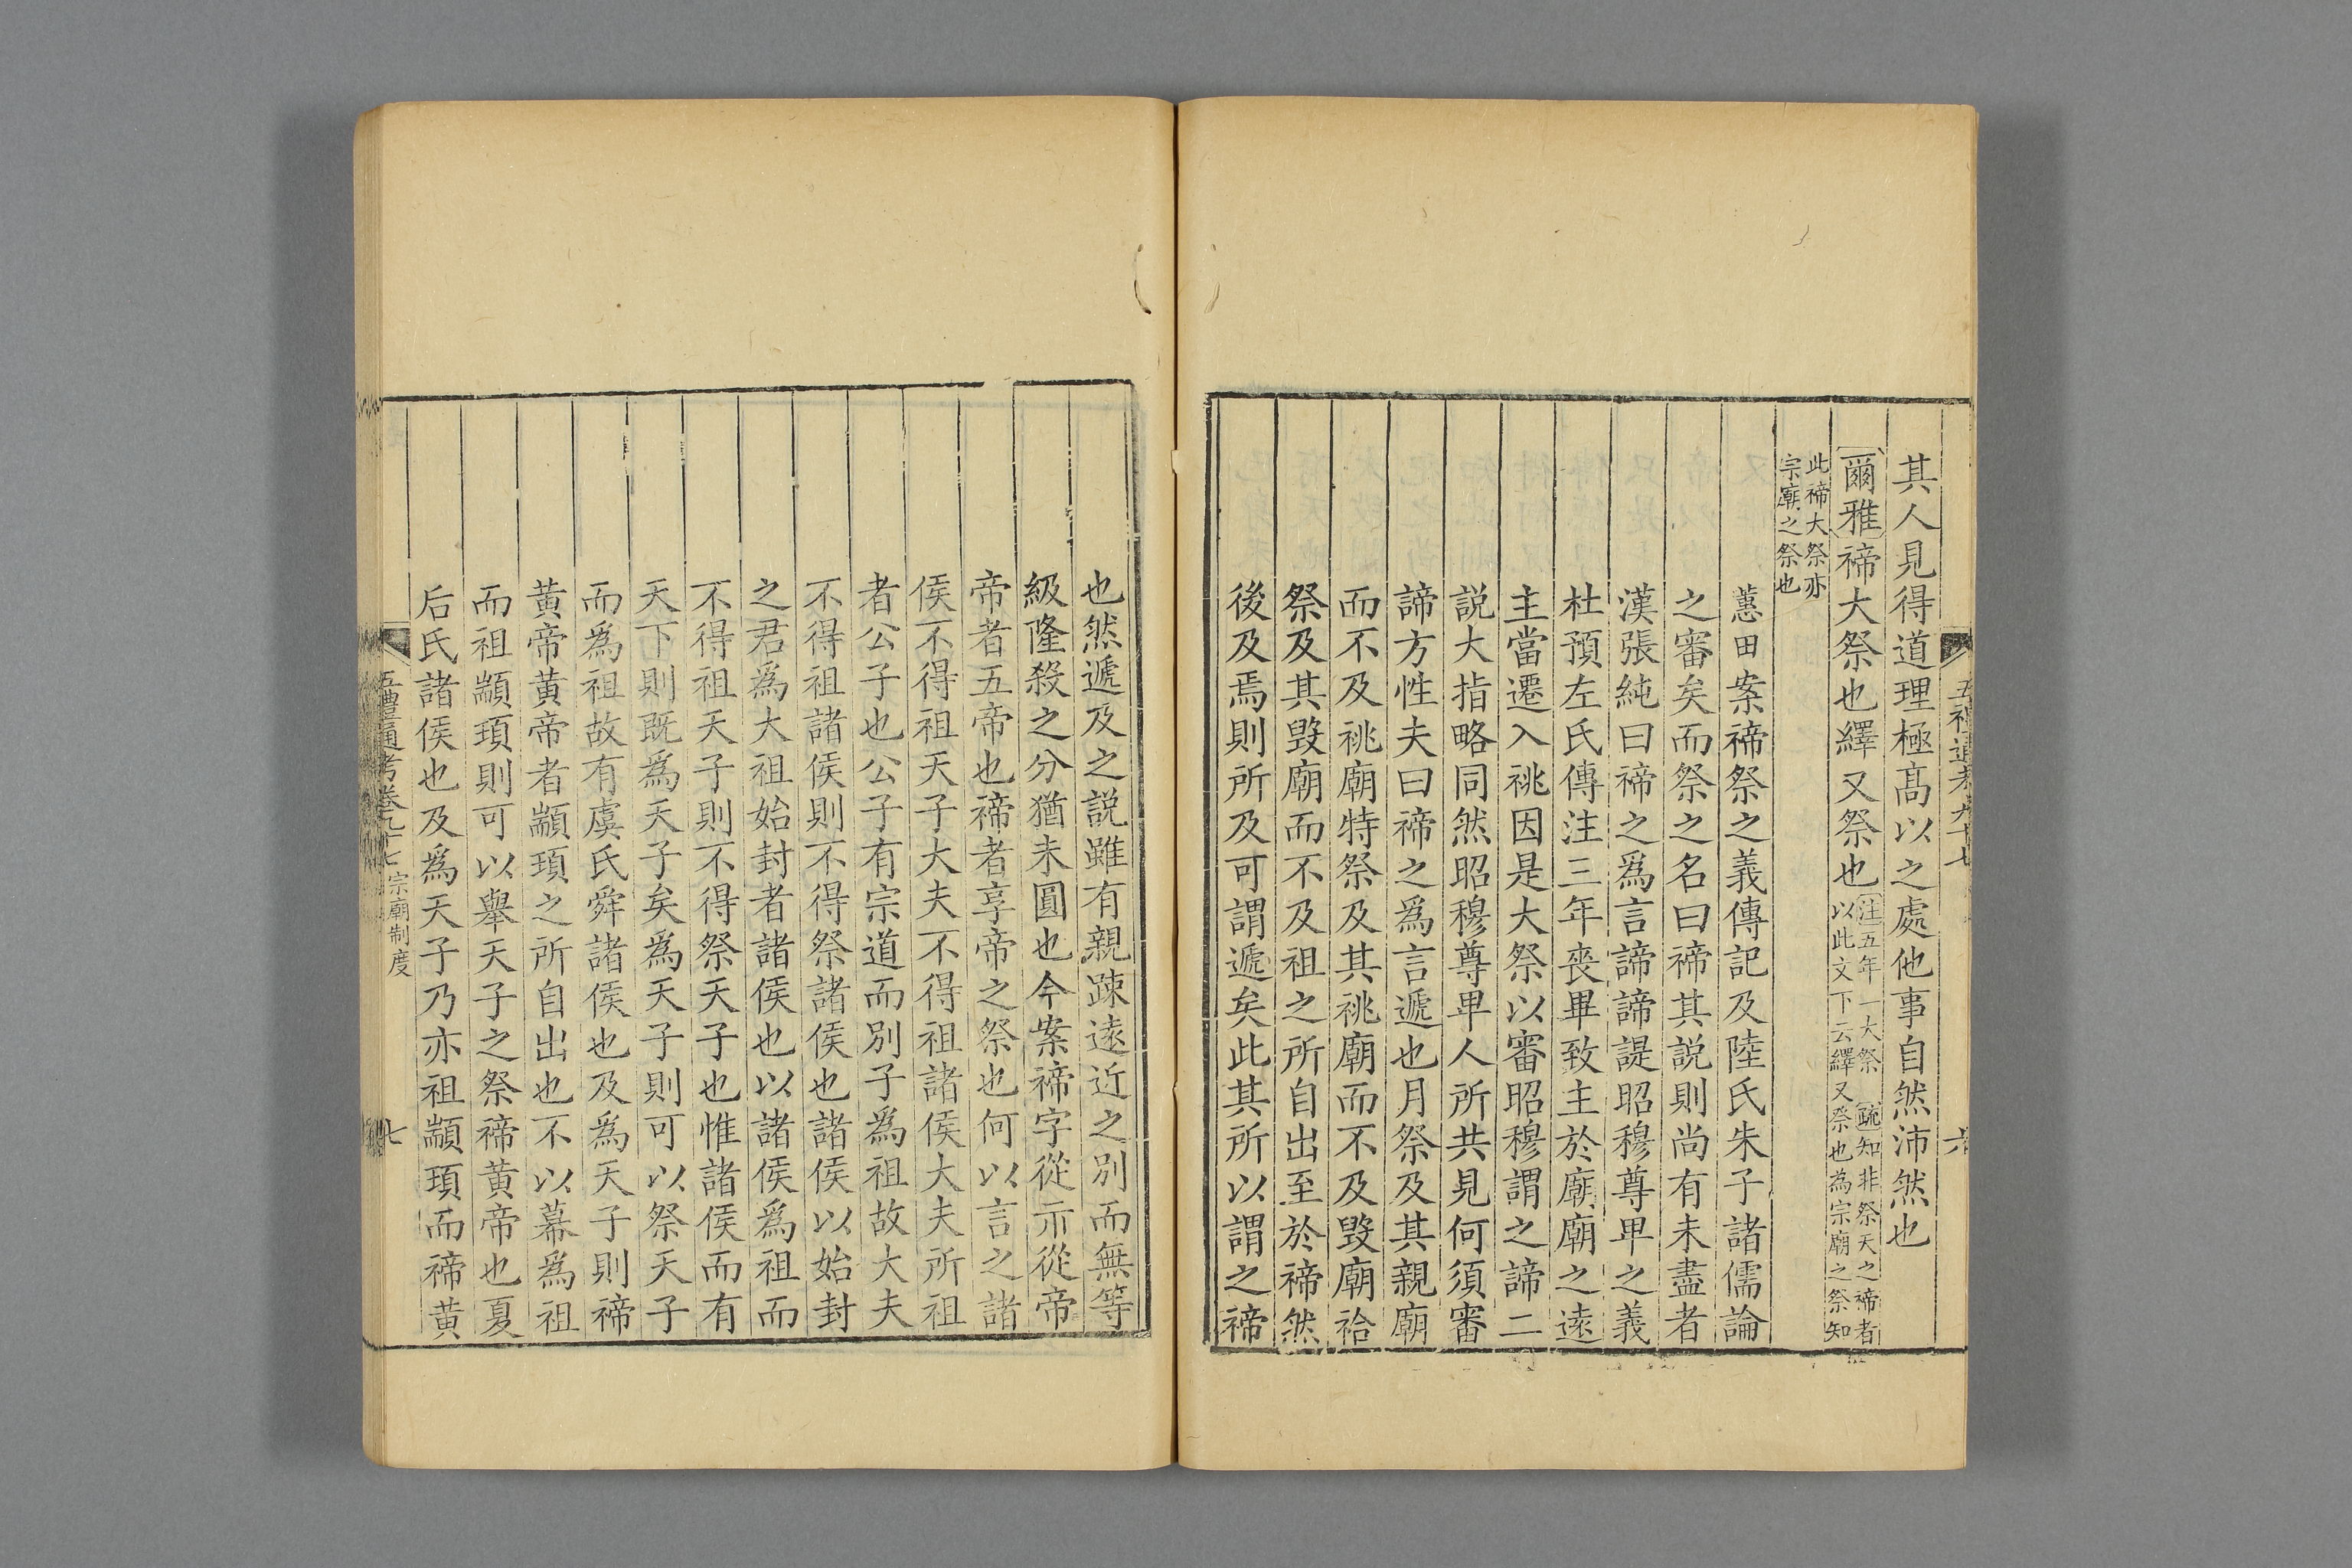 其人見得道理極高以之處他事自然沛然也
爾雅禘大祭也繹又祭也注五年一大祭 疏知非祭天之禘者以此文下云繹又祭也為宗廟之祭知
此禘大祭亦宗廟之祭也
蕙田案禘祭之義傳記及陸氏朱子諸儒論
之審矣而祭之名曰禘其説則尚有未盡者
漢張純曰禘之爲言諦諦諟昭穆尊卑之義
杜預左氏傳注三年喪畢致主於廟廟之遠
主當遷入祧因是大祭以審昭穆謂之諦二
説大指略同然昭穆尊卑人所共見何須審
諦方性夫曰禘之爲言遞也月祭及其親廟
而不及祧廟特祭及其祧廟而不及毀廟祫
祭及其毀廟而不及祖之所自出至於禘然
後及焉則所及可謂遞矣此其所以謂之禘
也然遞及之説雖有親踈遠近之別而無等
級隆殺之分猶未圓也今案禘字從示從帝
帝者五帝也禘者享帝之祭也何以言之諸
侯不得祖天子大夫不得祖諸侯大夫所祖
者公子也公子有宗道而別子爲祖故大夫
不得祖諸侯則不得祭諸侯也諸侯以始封
之君爲大祖始封者諸侯也以諸侯爲祖而
不得祖天子則不得祭天子也惟諸侯而有
天下則既爲天子矣爲天子則可以祭天子
而爲祖故有虞氏舜諸侯也及爲天子則禘
黃帝黃帝者顓頊之所自出也不以幕爲祖
而祖顓頊則可以舉天子之祭禘黃帝也夏
后氏諸侯也及爲天子乃亦祖顓頊而禘黃
五禮通考卷九十七 宗廟制度
七